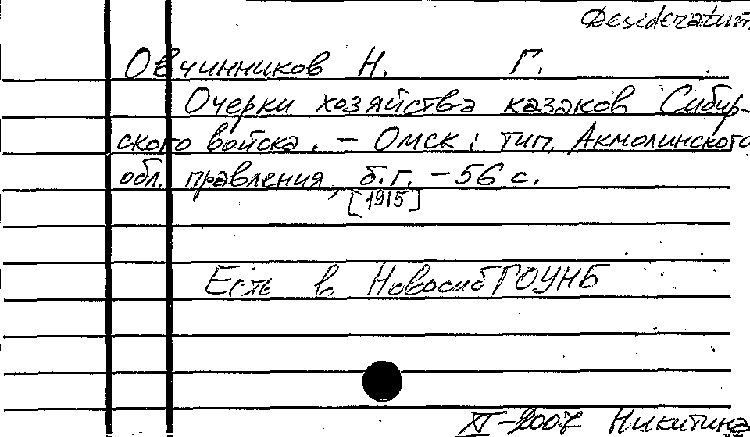 Desideratum
Овчинников Н. Г.
Очерки хозяйства казаков Сибир-
ского войска. – Омск: тип. Акмолинского
обл. правления, б.г. – 56 с.
[1915]
Есть в НовосибГОУНБ
XI-2007 Никитина